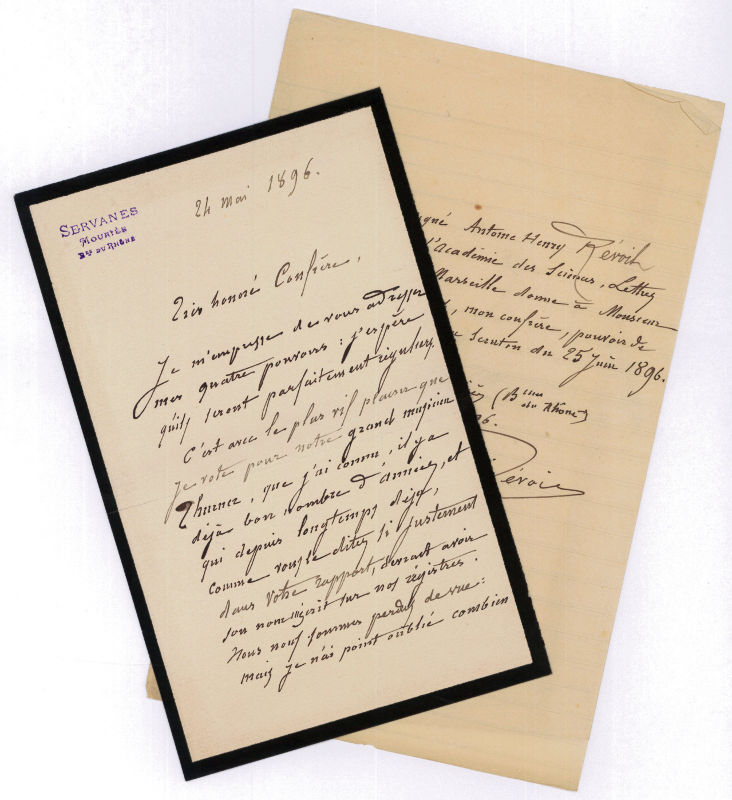 SERVANES
MOURIÈS
Bes DU RHÔNE
24 mai 1896.
Très honoré Confrère,
Je m'empresse de vous adresser
mes quatre pouvoirs : j'espère
qu'ils seront parfaitement réguliers.
C'est avec le plus vif plaisir que
je vote pour notre grand musicien
que j'ai connu, il y a
déjà bon nombre d'années, et
qui depuis longtemps déjà,
comme vous le dites si justement
dans votre rapport, devrait avoir
son nom inscrit sur nos régistres.
Nous nous sommes perdus de vue :
mais je n'ai point oublié combien
gné Antoine Henry Révoil
l'Académie des Sciences, Lettres
Marseille donne à Monsieur
, mon confrère, pouvoir de
scrutin du 25 Juin 1896.
ès (Bouches du Rhône)
96.
Révoil